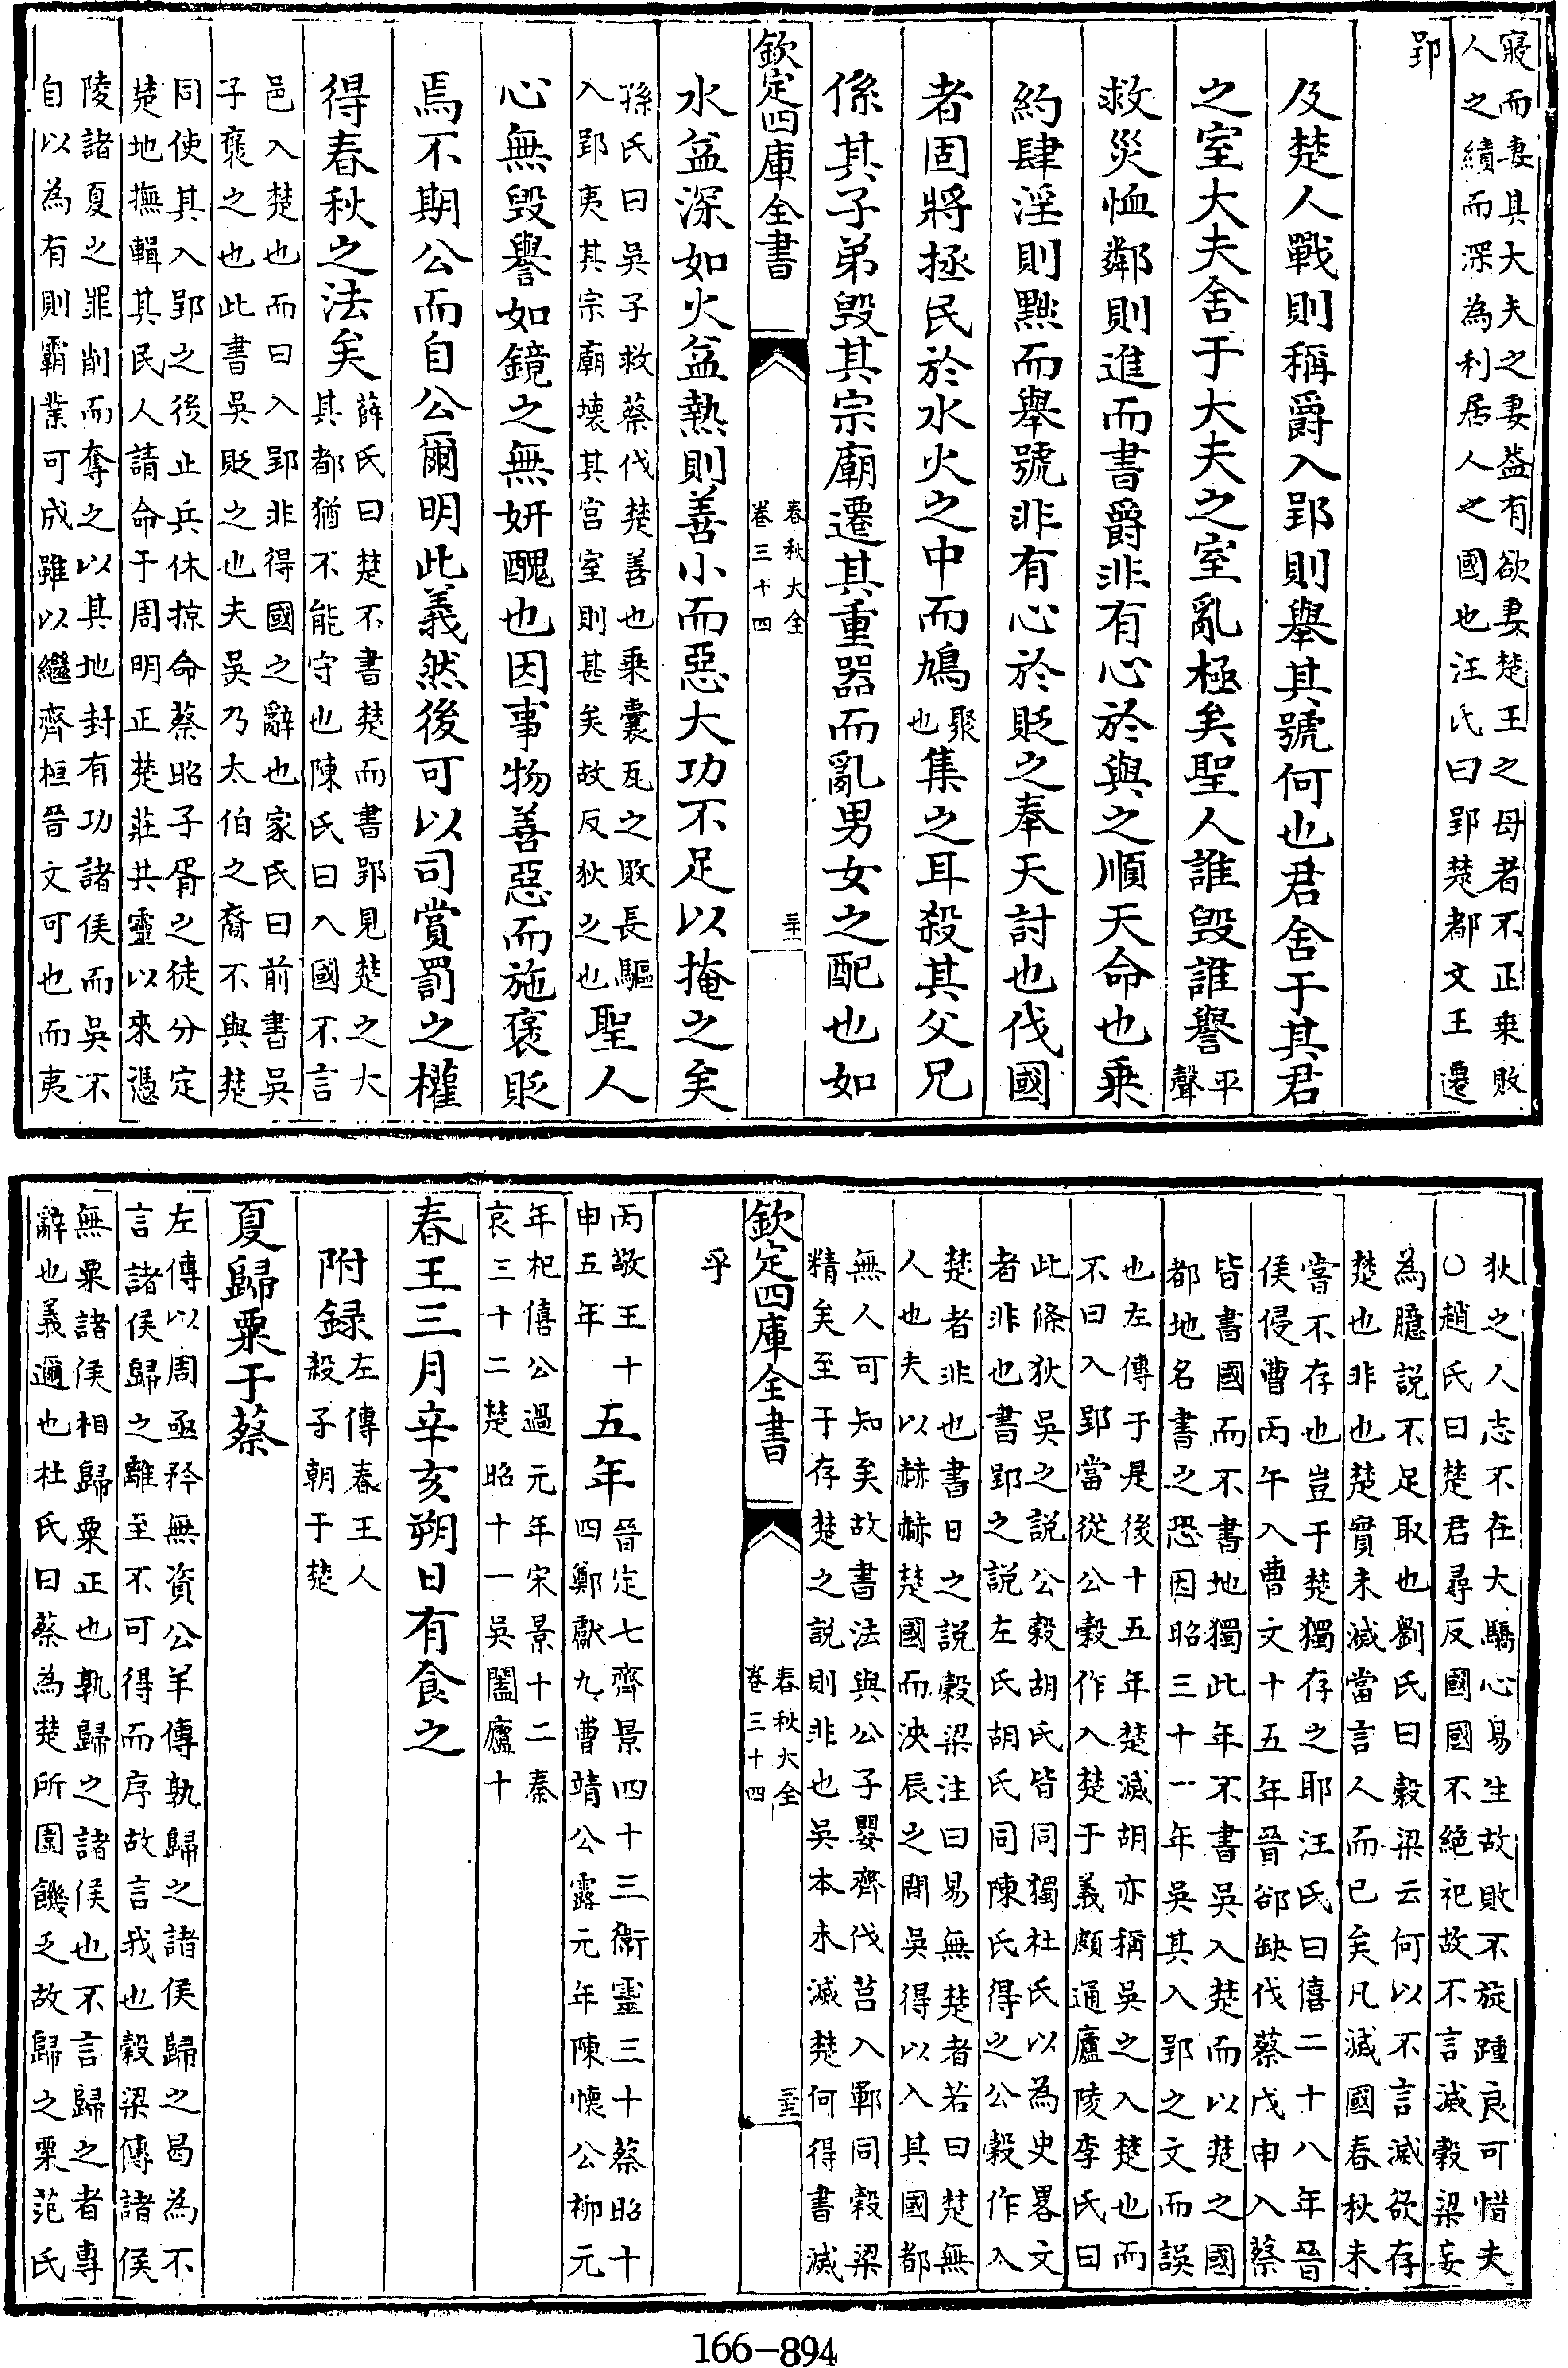 寢而妻其大夫之妻盖有欲妻楚王之母者不正乗敗
人之績而深為利居人之國也汪氏曰郢楚都文王遷
郢
及楚人戰則稱爵入郢則舉其號何也君舍于其君
之室大夫舍于大夫之室亂極矣聖人誰毁誰譽平聲
救災恤鄰則進而書爵非有心於與之順天命也乗
約肆淫則黜而舉號非有心於貶之奉天討也伐國
者固將拯民於水火之中而鳩聚也集之耳殺其父兄
係其子弟毁其宗廟遷其重器而亂男女之配也如
欽定四庫全書
春秋大全
卷三十四
三十一
水益深如火益熱則善小而惡大功不足以掩之矣
孫氏曰吳子救蔡伐楚善也乗囊瓦之敗長驅
入郢夷其宗廟壊其宫室則甚矣故反狄之也
聖人
心無毁譽如鏡之無妍醜也因事物善惡而施褒貶
焉不期公而自公爾明此義然後可以司賞罰之權
得春秋之法矣
薛氏曰楚不書楚而書郢見楚之大
其都猶不能守也陳氏曰入國不言
邑入楚也而曰入郢非得國之辭也家氏曰前書吳
子褒之也此書吳貶之也夫吳乃太伯之裔不與楚
同使其入郢之後止兵休掠命蔡昭子胥之徒分定
楚地撫輯其民人請命于周明正楚莊共靈以來憑
陵諸夏之罪削而奪之以其地封有功諸侯而吳不
自以為有則霸業可成雖以繼齊桓晉文可也而夷
狄之人志不在大驕心易生故敗不旋踵良可惜夫
○趙氏曰楚君尋反國國不絶祀故不言滅穀梁妄
為臆説不足取也劉氏曰穀梁云何以不言滅欲存
楚也非也楚實未滅當言人而已矣凡滅國春秋未
嘗不存也豈于楚獨存之耶汪氏曰僖二十八年晉
侯侵曹丙午入曹文十五年晉郤缺伐蔡戊申入蔡
皆書國而不書地獨此年不書吳入楚而以楚之國
都地名書之恐因昭三十一年吳其入郢之文而誤
也左傳于是後十五年楚滅胡亦稱吳之入楚也而
不曰入郢當從公穀作入楚于義頗通廬陵李氏曰
此條狄吳之説公穀胡氏皆同獨杜氏以為史畧文
者非也書郢之説左氏胡氏同陳氏得之公穀作入
楚者非也書日之説穀梁注曰易無楚者若曰楚無
人也夫以赫赫楚國而浹辰之間吳得以入其國都
無人可知矣故書法與公子嬰齊伐莒入鄆同穀梁
精矣至于存楚之説則非也吳本未滅楚何得書滅
欽定四庫全書
春秋大全
卷三十四
三十二
乎
丙敬王十
申五年
五年
晉定七齊景四十三衞靈三十蔡昭十
四鄭獻九曹靖公露元年陳懷公柳元
年杞僖公過元年宋景十二秦
哀三十二楚昭十一吳闔廬十
春王三月辛亥朔日有食之
附録
左傳春王人
殺子朝于楚
夏歸粟于蔡
左傳以周亟矜無資公羊傳孰歸之諸侯歸之曷為不
言諸侯歸之離至不可得而序故言我也穀梁傳諸侯
無粟諸侯相歸粟正也孰歸之諸侯也不言歸之者專
辭也義邇也杜氏曰蔡為楚所圍饑乏故歸之粟范氏
166-894